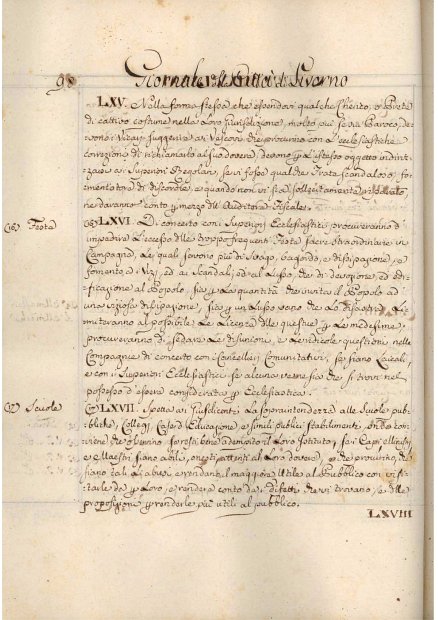 98 Giornale della Città di Livorno
LXV. Nella forma stessa, che essendovi qualche Cherico, o Prete
di cattivo costume nella Loro Giurisdizione, molto più se un Paroco, de-
vono i Vicarj suggerire ai Vescovi che procurino con l'ecclesiastiche
correzioni di richiamarlo al suo dovere, devono p. l'istesso oggetto indiriz-
zarsi ai Superiori Regolari, se vi fosse qualche Frate scandaloso, o
fomentatore di discordie, e quando non vi sia sollecitamente rimediato
ne daranno conto p. mezzo dell'Auditore Fiscale.
(16) Feste (16) LXVI. Di concerto con i Superiori Ecclesiastici procureranno d'
impedire l'eccesso delle troppo frequenti Feste sacre straordinarie in
Campagna, Le quali servono più di svago, bagordo, e dissipazione, e
fomento ai Vizj, ed ai Scandali, ed al Lusso, che di devozione, ed edi-
ficazione al Popolo, sia p. la quantità che invita il Popolo ad
una oziosa dissipazione, sia p. un Lusso vano che Lo
miteranno al possibile Le Licenze delle questue p. Le medesime,
procureranno di sedare Le disunioni, e Le ridicole questioni nelle
Compagnie di concerto con i Cancellieri Comunitativi, se siano Laicali,
e con i Superiori Ecclesiastici se alcuna ve ne sia che si trovi nel
possesso d'essere considerata p. Ecclesiastica.
(17) Scuole (17) LXVII. Spetta ai Giusdicenti La soprintendenza alle Scuole pub-
bliche, Collegj, Case di Educazione, e simili publici stabilimenti, onde con-
viene che osservino se resti bene adempito il Loro Istituto, se i Capi
e Maestri siano abili, onesti, attenti al Loro dovere, che provvino, che
siano tali Le classi, e rendano il maggiore Utile al Pubblico con visi-
tarle da p. Loro, e rendere conto da' difetti che vi trovano, e delle
proposizioni p. renderle più utili al pubblico.
LXVIII